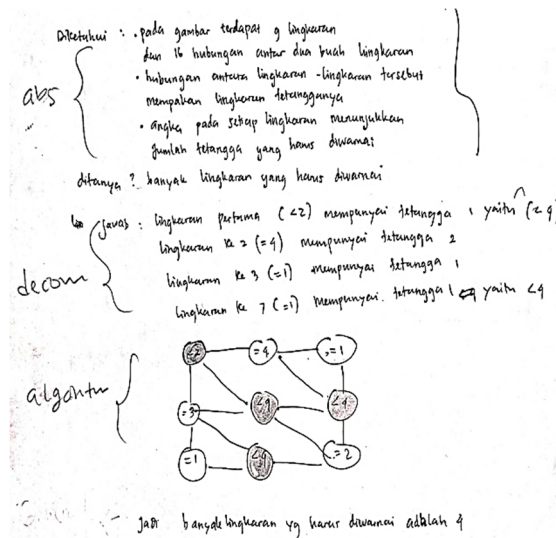 Diketahui : • pada gambar terdapat 9 lingkaran
dan 16 hubungan antar dua buah lingkaran
• hubungan antara lingkaran - lingkaran tersebut
merupakan lingkaran tetangganya
• angka pada setiap lingkaran menunjukkan
Jumlah tetangga yang harus diwarnai
abs
ditanya ? banyak lingkaran yang harus diwarnai
Jawab : lingkaran pertama (<2) mempunyai tetangga 1 yaitu
lingkaran ke 2 (=4) mempunyai tetangga 2
lingkaran ke 3 (=1) mempunyai tetangga 1
lingkaran ke 7 (=1) mempunyai tetangga 1 yaitu <4
decom
algoritm
<2 =4 =1
=3 <4
=1 =2
Jadi banyak lingkaran yg harus diwarnai adalah 4